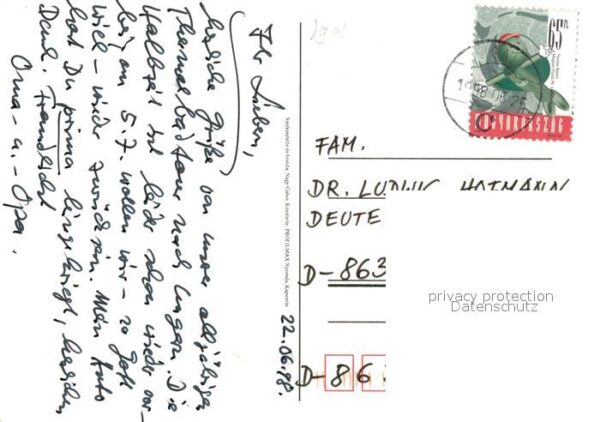 Ihr Lieben,
herzliche Grüße von unserer alljährigen
Thermalbadtour nach Ungarn. Die
Halbzeit ist leider schon wieder vor-
bei, am 5.7. wollen wir – so Gott
will – wieder zurück sein. Mein Auto
hast Du prima hingekriegt, herzlichen
Dank. Freundlichst
Oma - u. - Opa.
22.06.98.
FAM.
DR. LUDWIG
DEUTE
D-863
D-86
65 Ft
MAGYARORSZÁG
privacy protection
Datenschutz